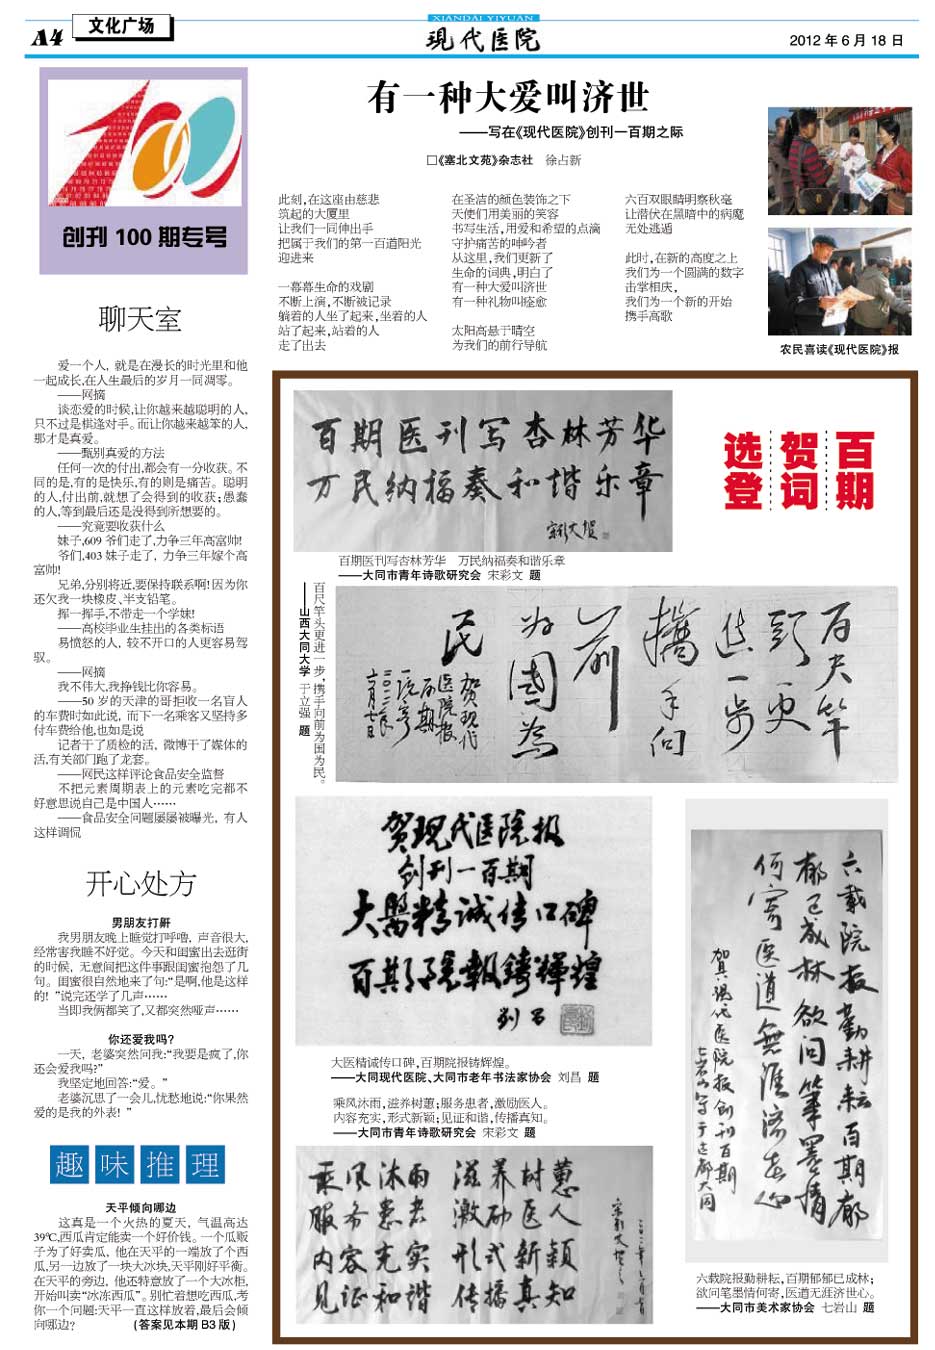 A4
文化广场
XIANDAI YIYUAN
现代医院
2012 年 6 月 18 日
100
创刊 100 期专号
聊天室
爱一个人, 就是在漫长的时光里和他
一起成长,在人生最后的岁月一同凋零。
——网摘
谈恋爱的时候,让你越来越聪明的人,
只不过是棋逢对手。而让你越来越笨的人,
那才是真爱。
——甄别真爱的方法
任何一次的付出,都会有一分收获。不
同的是,有的是快乐,有的则是痛苦。聪明
的人,付出前,就想了会得到的收获；愚蠢
的人,等到最后还是没得到所想要的。
——究竟要收获什么
妹子,609 爷们走了,力争三年高富帅!
爷们,403 妹子走了, 力争三年嫁个高
富帅!
兄弟,分别将近,要保持联系啊!因为你
还欠我一块橡皮、半支铅笔。
挥一挥手,不带走一个学妹!
——高校毕业生挂出的各类标语
易愤怒的人, 较不开口的人更容易驾
驭。
——网摘
我不伟大,我挣钱比你容易。
——50 岁的天津的哥拒收一名盲人
的车费时如此说, 而下一名乘客又坚持多
付车费给他,也如是说
记者干了质检的活, 微博干了媒体的
活,有关部门跑了龙套。
——网民这样评论食品安全监督
不把元素周期表上的元素吃完都不
好意思说自己是中国人……
——食品安全问题屡屡被曝光, 有人
这样调侃
开心处方
男朋友打鼾
我男朋友晚上睡觉打呼噜, 声音很大,
经常害我睡不好觉。今天和闺蜜出去逛街
的时候, 无意间把这件事跟闺蜜抱怨了几
句。闺蜜很自然地来了句:“是啊,他是这样
的! ”说完还学了几声……
当即我俩都笑了,又都突然哑声……
你还爱我吗?
一天, 老婆突然问我:“我要是疯了,你
还会爱我吗?”
我坚定地回答:“爱。”
老婆沉思了一会儿,忧愁地说:“你果然
爱的是我的外表! ”
趣味推理
天平倾向哪边
这真是一个火热的夏天, 气温高达
39℃,西瓜肯定能卖一个好价钱。一个瓜贩
子为了好卖瓜, 他在天平的一端放了个西
瓜,另一边放了一块大冰块,天平刚好平衡。
在天平的旁边, 他还特意放了一个大冰柜,
开始叫卖“冰冻西瓜”。别忙着想吃西瓜,考
你一个问题:天平一直这样放着,最后会倾
向哪边?
(答案见本期 B3 版)
有一种大爱叫济世
——写在《现代医院》创刊一百期之际
□《塞北文苑》杂志社 徐占新
此刻,在这座由慈悲
筑起的大厦里
让我们一同伸出手
把属于我们的第一百道阳光
迎进来
一幕幕生命的戏剧
不断上演,不断被记录
躺着的人坐了起来,坐着的人
站了起来,站着的人
走了出去
在圣洁的颜色装饰之下
天使们用美丽的笑容
书写生活,用爱和希望的点滴
守护痛苦的呻吟者
从这里,我们更新了
生命的词典,明白了
有一种大爱叫济世
有一种礼物叫痊愈
太阳高悬于晴空
为我们的前行导航
六百双眼睛明察秋毫
让潜伏在黑暗中的病魔
无处逃遁
此时,在新的高度之上
我们为一个圆满的数字
击掌相庆,
我们为一个新的开始
携手高歌
农民喜读《现代医院》报
百期
贺词
选登
百期医刊写杏林芳华
万民纳福奏和谐乐章
百期医刊写杏林芳华 万民纳福奏和谐乐章
——大同市青年诗歌研究会 宋彩文 题
百尺竿
头更
进一步
携手向
前
为国为
民
贺现代
医院报
百期
百尺竿头更进一步,携手向前为国为民。
——山西大同大学 于立强 题
贺现代医院报
创刊一百期
大醫精诚传口碑
百期院報鑄輝煌
刘昌
大医精诚传口碑,百期院报铸辉煌。
——大同现代医院、大同市老年书法家协会 刘昌 题
乘风沐雨,滋养树蕙；服务患者,激励医人。
内容充实,形式新颖；见证和谐,传播真知。
——大同市青年诗歌研究会 宋彩文 题
乘风沐雨 滋养树蕙
服务患者 激励医人
内容充实 形式新颖
见证和谐 传播真知
六载院报勤耕耘百期郁
郁已成林欲问笔墨情
何寄医道無涯济世心
贺现代医院报创刊百期
七岩山写于古都大同
六载院报勤耕耘,百期郁郁已成林；
欲问笔墨情何寄,医道无涯济世心。
——大同市美术家协会 七岩山 题